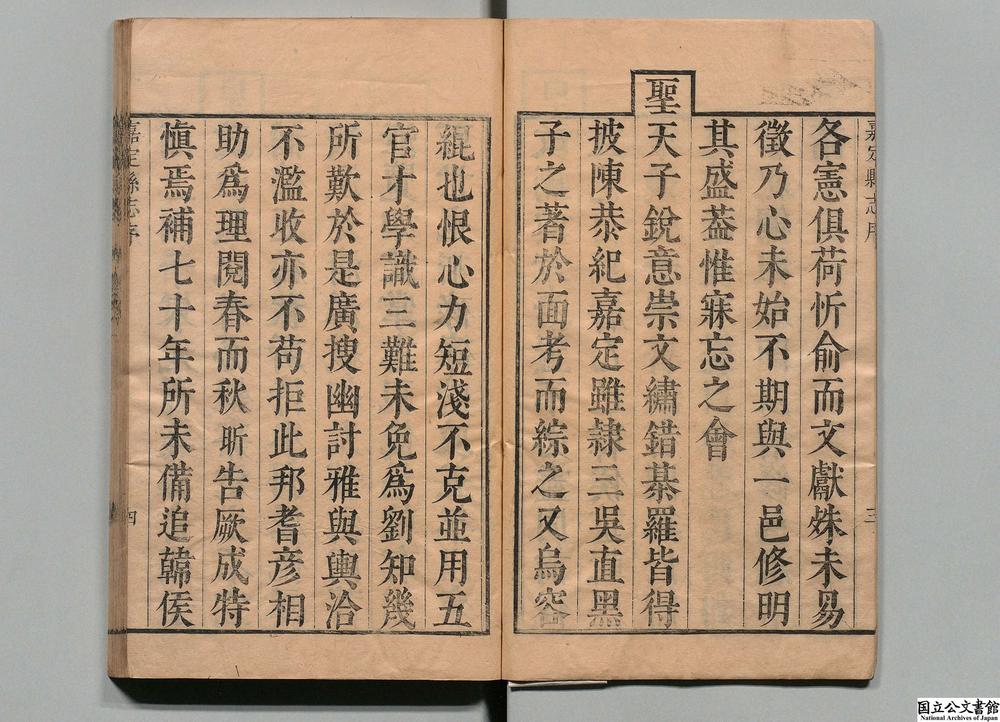 嘉定縣志序
三
各憲俱荷忻俞而文獻姝未易
徵乃心未始不期與一邑修明
其盛葢惟寐忘之會
聖天子銳意崇文繡錯棊羅皆得
披陳恭紀嘉定雖隷三吳直黑
子之著於面考而綜之又烏容
緄也恨心力短淺不克並用五
官才學識三難未免爲劉知幾
所歎於是廣搜幽討雅與輿洽
不濫收亦不苟拒此邦耆彥相
助爲理閱春而秋昕告厥成特
慎焉補七十年所未備追韓侯
嘉定縣志序
四
国立公文書館
National Archives of Japan